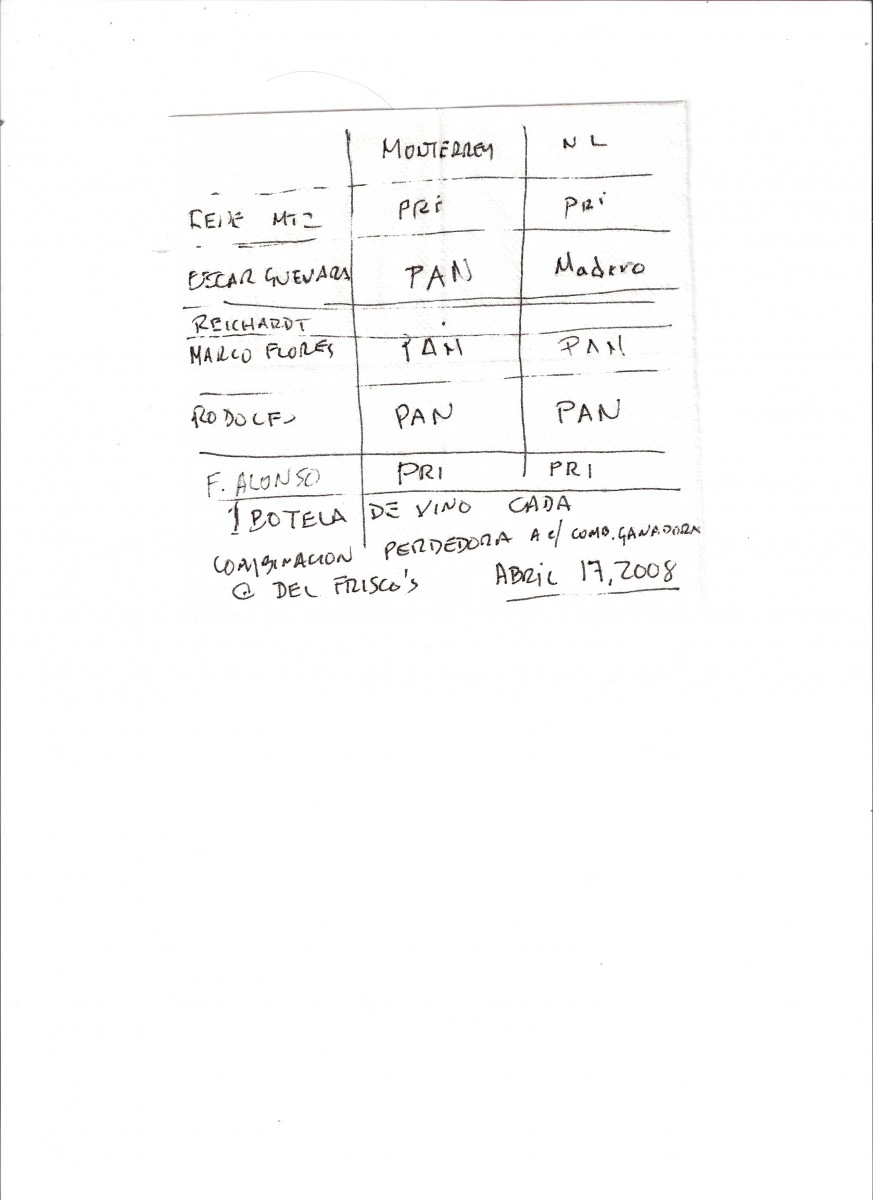 MONTERREY NL
MTZ PRi PRi
OSCAR GUEVARA PAN Madero
REICHARDT
MARCO FLORES PAN PAN
RODOLFO PAN PAN
F. ALONSO PRI PRI
1 BOTELA DE VINO CADA
COMBINACION PERDEDORA A c/ COMB. GANADORA
@ DEL FRISCO'S ABRIL 17, 2008